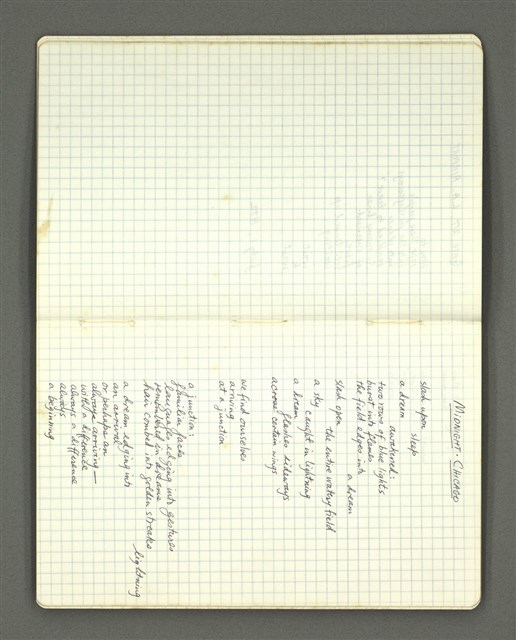 MIDNIGHT · CHICAGO
slash upon
sleep
a dream
awakened:
two rows of blue lights
burst into flames
the field edges into
a dream
slash open
the entire watery field
a sky
caught in lightning
a dream
flashes sideways
across certain wings
we find ourselves
arriving
at a junction
a junction:
familiar faces
language edging into gestures
remembered in dreams
hair combed into golden streaks
lightning
a dream edging into
an arrival
or perhaps an
always arriving—
with a difference
always a difference
always
a beginning